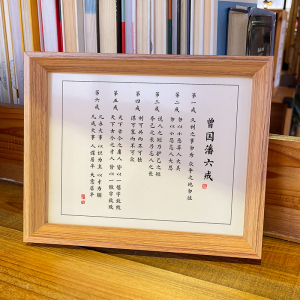 曾国藩六戒
第一戒 久利之事勿为 众争之地勿往
第二戒 勿以小恶弃人大美
勿以小怨忘人大恩
第三戒 说人之短乃护己之短
夸己之长乃忌人之长
第四戒 利可共而不可独
谋可寡而不可众
第五戒 天下古今之庸人 皆以一惰字致败
天下古今之才人 皆以一傲字致败
第六戒 凡办大事 以识为主 以才为辅
凡成大事 人谋居半 天意居半